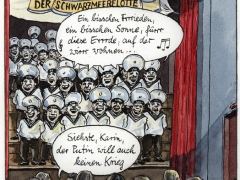 DER SCHWARZMEERFLOTTE
Ein bisschen Frrieden,
ein bisschen Sonne, fürr
diese Errde, auf der
wirr wohnen...
Siehste, Karin,
der Putin will auch
keinen Krieg